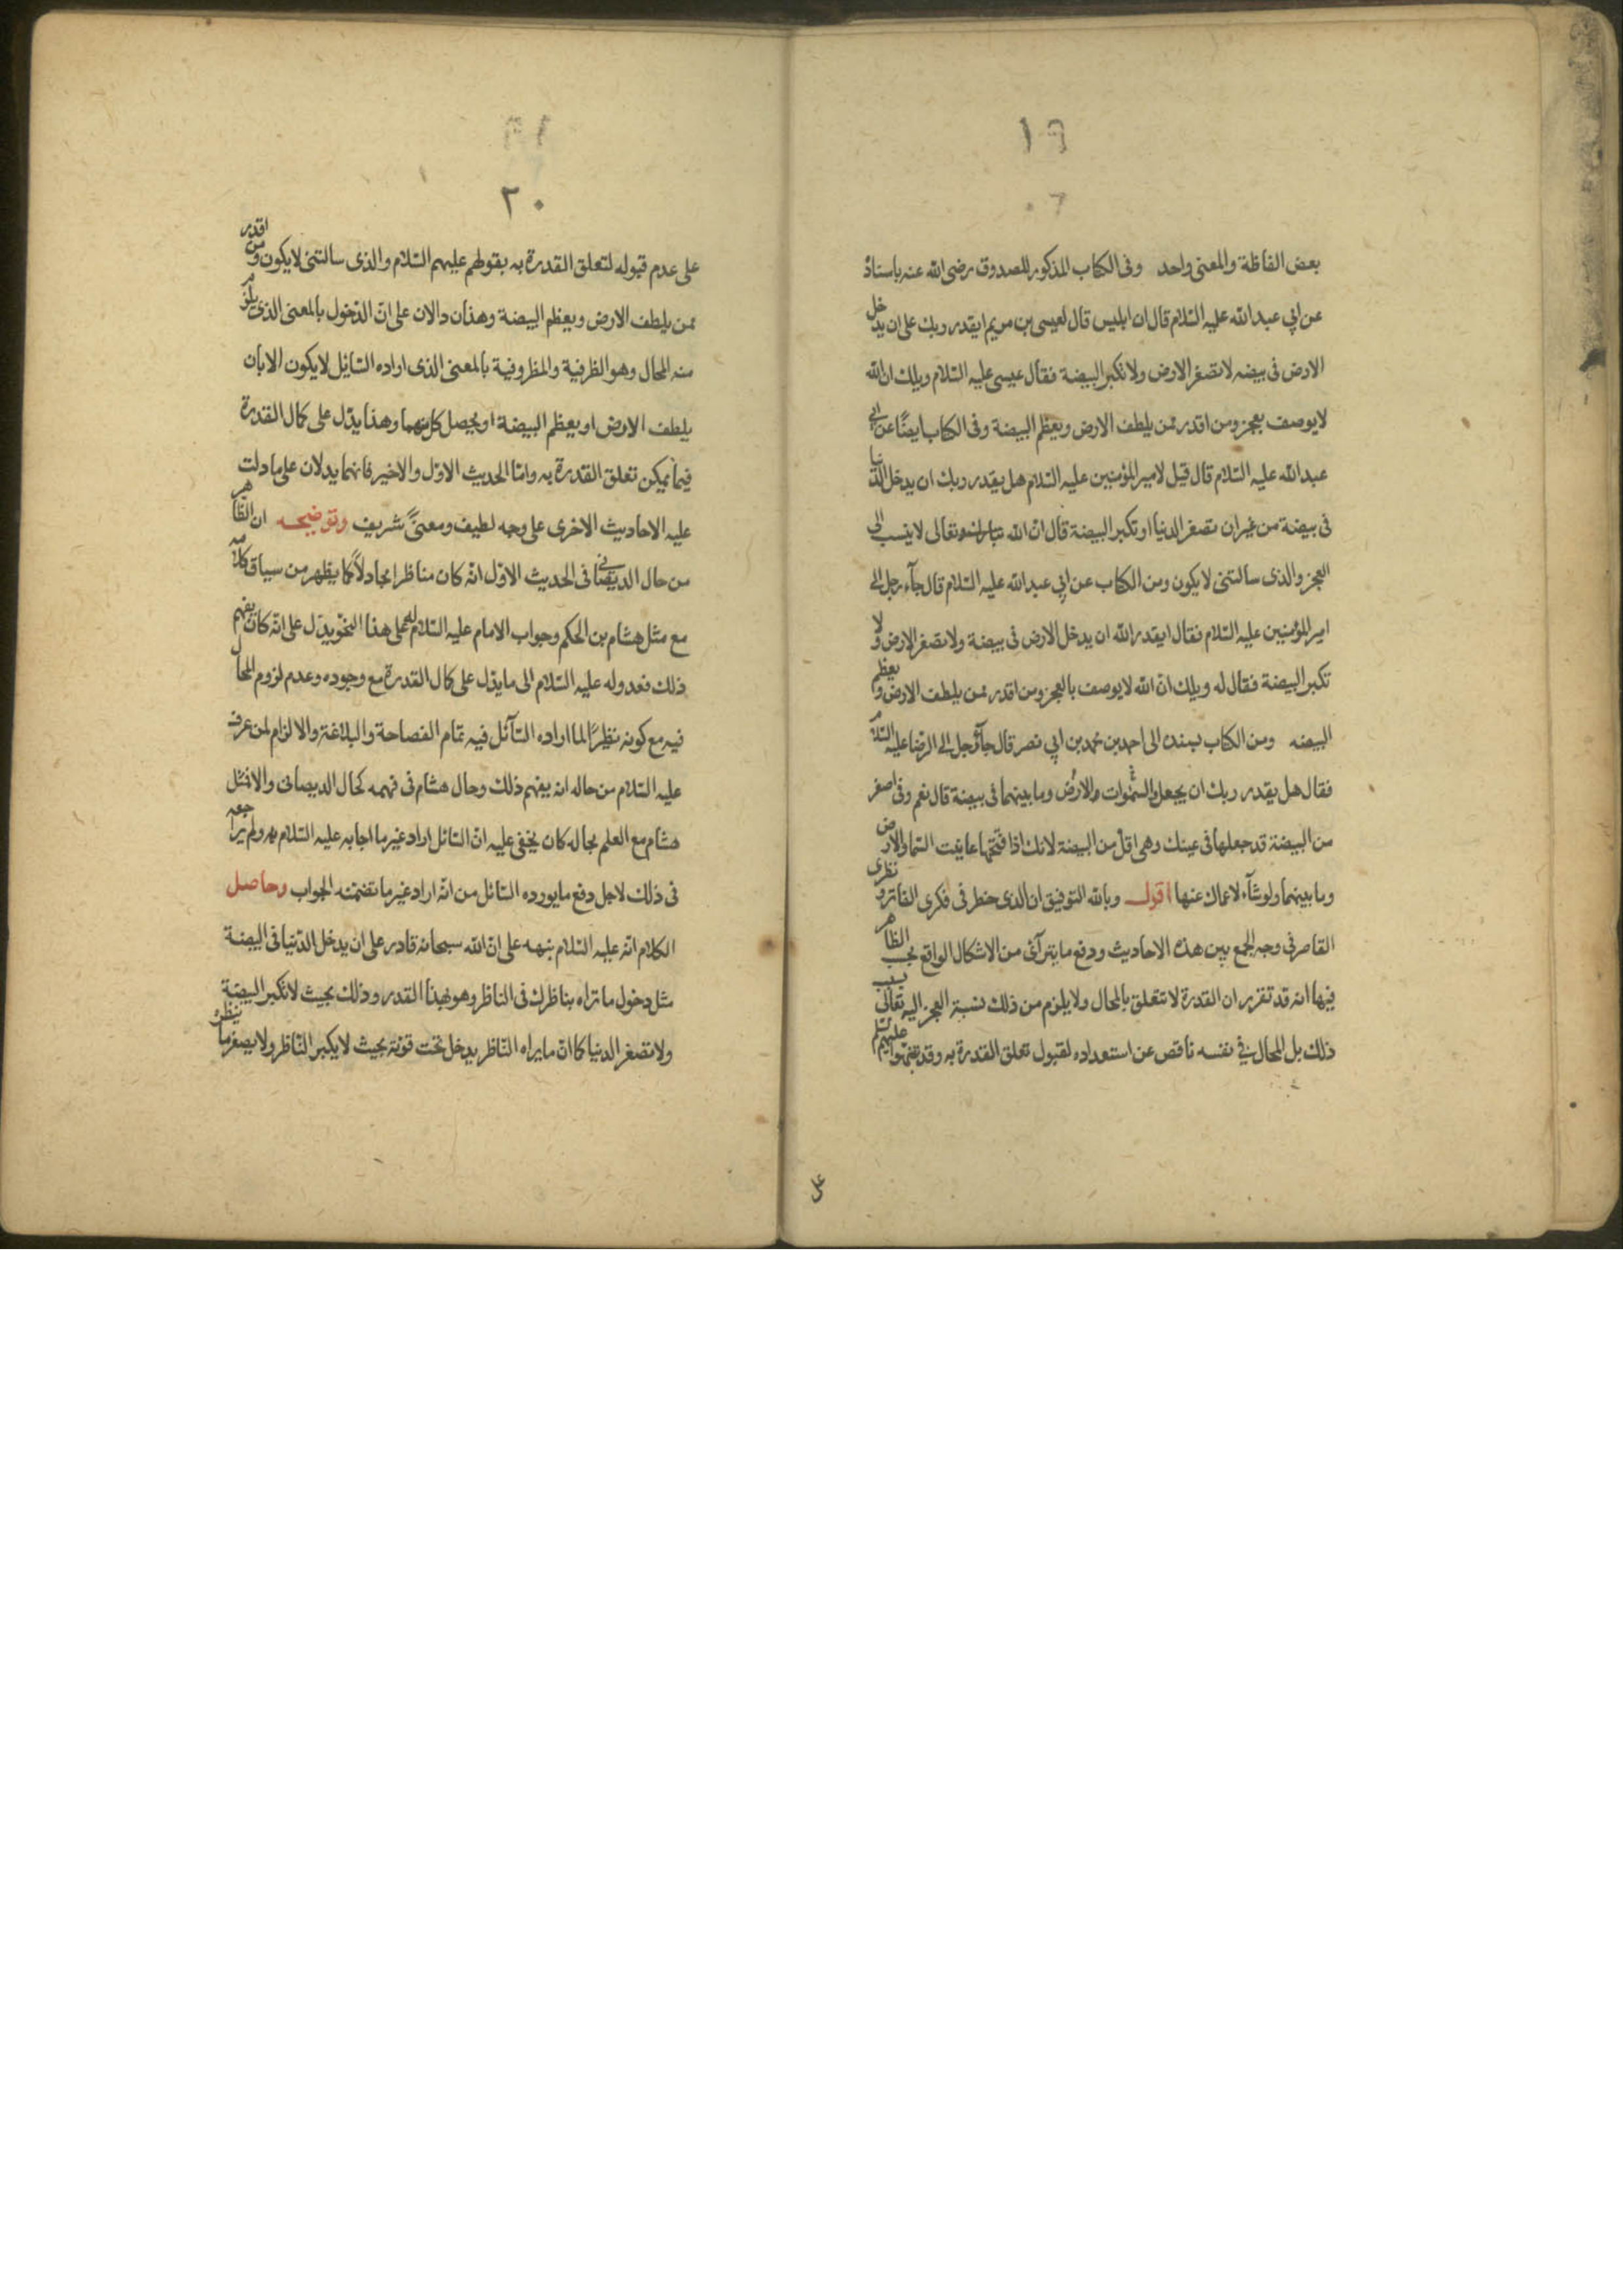 ١٩
بعض الفاظه والمعنى واحد وفى الكتاب المذكور للصدوق رضى الله عنه باسناده
عن ابي عبد الله عليه السّلام قال ان ابليس قال لعيسى بن مريم ايقدر ربك على ان يدخل
الارض فى بيضه لا تصغر الارض ولا تكبر البيضة فقال عيسى عليه السّلام ويلك ان الله
لا يوصف بعجز ومن اقدر ممن يلطف الارض ويعظم البيضة وفى الكتاب ايضًا عن ابي
عبد الله عليه السّلام قال قيل لامير المؤمنين عليه السّلام هل يقدر ربك ان يدخل الدنيا
فى بيضة من غير ان تصغر الدنيا او تكبر البيضة قال انّ الله تبارك وتعالى لا ينسب الى
العجز والذى سالتنى لا يكون ومن الكتاب عن ابي عبد الله عليه السّلام قال جآء رجل الى
امير المؤمنين عليه السّلام فقال ايقدر الله ان يدخل الارض فى بيضة ولا تصغر الارض ولا
تكبر البيضة فقال له ويلك انّ الله لا يوصف بالعجز ومن اقدر ممن يلطف الارض ويعظم
البيضه ومن الكتاب بسنده الى احمد بن محمد بن ابي نصر قال جآء رجل الى الرضا عليه السّلام
فقال هل يقدر ربك ان يجعل السّموات والارض وما بينهما فى بيضة قال نعم وفى اصغر
من البيضة قد جعلها فى عينك وهى اقلّ من البيضة لانك اذا فتحتها عاينت السّما والارض
وما بينهما ولو شآء لاعماك عنها اقول وبالله التوفيق ان الذى خطر فى فكرى الفاتر ونظرى
القاصر فى وجه الجمع بين هذه الاحاديث ودفع ما يترآئى من الاشكال الواقع بحسب الظاهر
فيها انه قد تقرر ان القدرة لا تتعلق بالمحال ولا يلزم من ذلك نسبة العجز اليه تعالى بسبب
ذلك بل المحال فى نفسه ناقص عن استعداده لقبول تعلق القدرة به وقد نبّهوا عليهم السّلم
على
٢٠
على عدم قبوله لتعلق القدرة به بقولهم عليهم السّلام والذى سالتنى لا يكون ومن اقدر
ممن يلطف الارض ويعظم البيضة وهذان دالان على انّ الدّخول بالمعنى الذى يلزم
منه المحال وهو الظرفية والمظروفية بالمعنى الذى اراده السّايل لا يكون الا بان
يلطف الارض او يعظم البيضة او يحصل كل منهما وهذا يدّل على كمال القدرة
فيما يمكن تعلق القدرة به وامّا الحديث الاوّل والاخير فانهما يدلان على ما دلت
عليه الاحاديث الاخرى على وجه لطيف ومعنىً شريف وتوضيحه ان الظاهر
من حال الديصانى فى الحديث الاوّل انّه كان مناظرا مجادلاً كما يظهر من سياق كلامه
مع مثل هشام بن الحكم وجواب الامام عليه السّلام له على هذا النحو يدّل على انّه كان يفهم
ذلك فعدوله عليه السّلام الى ما يدّل على كمال القدرة مع وجوده وعدم لزوم المحال
فيه مع كونه نظيرًا لما اراده السّآئل فيه تمام الفصاحة والبلاغة والالزام لمن عرف
عليه السّلام من حاله انه يفهم ذلك وحال هشام فى فهمه كحال الديصانى والا فمثل
هشام مع العلم بحاله كان يخفى عليه انّ السّائل اراد غير ما اجابه عليه السّلام به ولم يراجعه
فى ذلك لاجل دفع ما يورده السّائل من انّه اراد غير ما تضمنه الجواب وحاصل
الكلام انّه عليه السّلام نبهه على انّ الله سبحانه قادر على ان يدخل الدّنيا فى البيضة
مثل دخول ما تراه بناظرك فى الناظر وهو بهذا القدر وذلك بحيث لا تكبر البيضة
ولا تصغر الدنيا كما انّ ما يراه النّاظر يدخل تحت قوته بحيث لا يكبر النّاظر ولا يصغر ما ينظره